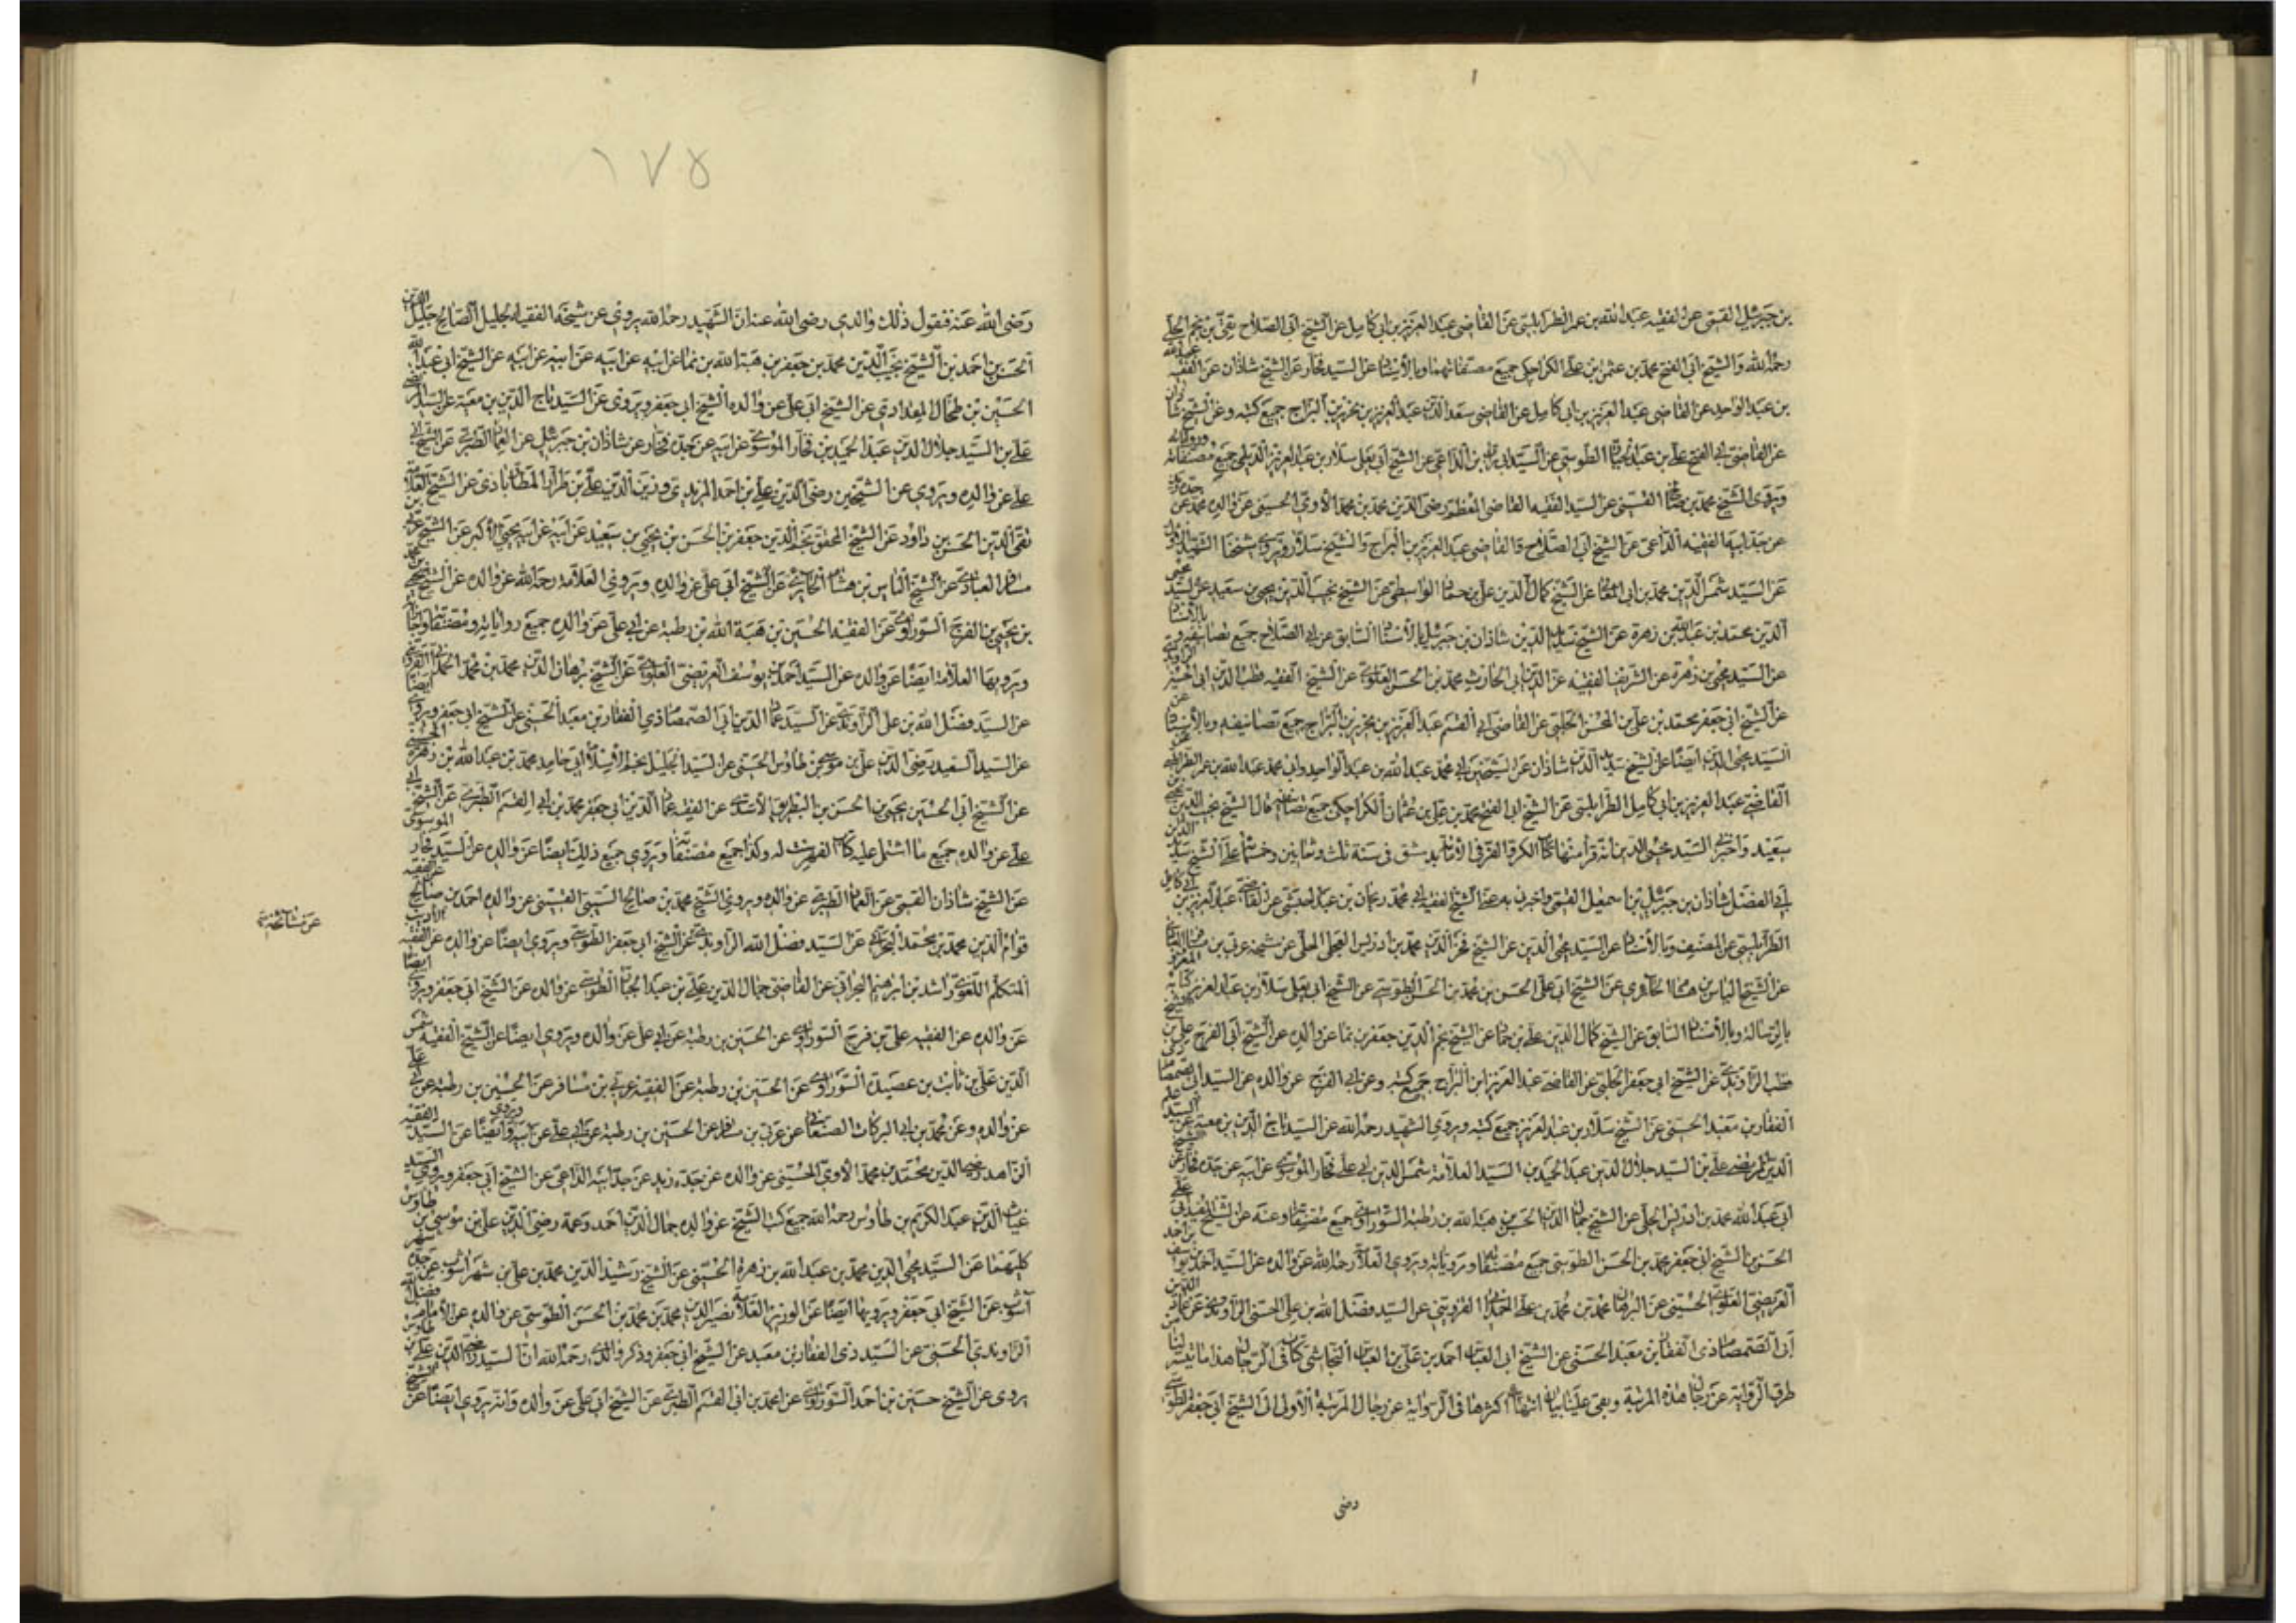 بن جبرئيل القمي عن الفقيه عبد الله بن عمر الطرابلسي عن القاضي عبد العزيز بن ابي كامل عن الشيخ ابي الصلاح تقي بن نجم الحلبي
رحمه الله والشيخ ابي الفتح محمد بن عثمان بن علي الكراجكي جميع مصنفاتهما وبالاسناد عن السيد فخار عن الشيخ شاذان عن الفقيه عبد الله
بن عبد الواحد عن القاضي عبد العزيز بن ابي كامل عن القاضي سعد الدين عبد العزيز بن نحرير بن البراج جميع كتبه وعن الشيخ شاذان
عن القاضي ابي الفتح علي بن عبد الجبار الطوسي عن السيد بن الداعي عن الشيخ ابي يعلى سلار بن عبد العزيز الديلمي جميع مصنفاته ورواياته
ويروى الشيخ محمد بن صالح القسيني عن السيد الفقيه القاضي المعظم رضي الدين محمد بن محمد الآوي الحسيني عن والده محمد عن جده زيد
عن جد ابيه الفقيه الداعي عن الشيخ ابي الصلاح والقاضي عبد العزيز بن البراج والشيخ سلار ويروي شيخنا الشهيد الاول
عن السيد شمس الدين محمد بن ابي المعالي عن الشيخ كمال الدين علي بن حماد الواسطي عن الشيخ نجيب الدين يحيى بن سعيد عن السيد محيي
الدين محمد بن عبد الله بن زهرة عن الشيخ سديد الدين شاذان بن جبرئيل بالاسناد السابق عن ابي الصلاح جميع تصانيفه وبالاسناد
عن السيد محيي بن زهرة عن الشريف الفقيه عز الدين ابي الحارث محمد بن الحسن العلوي عن الشيخ الفقيه قطب الدين ابي الحسين الراوندي
عن الشيخ ابي جعفر محمد بن علي بن المحسن الحلبي عن القاضي ابي القسم عبد العزيز بن نحرير بن البراج جميع تصانيفه وبالاسناد عن
السيد محيي الدين ايضا عن الشيخ سديد الدين شاذان عن الشيخين ابي محمد عبد الله بن عبد الواحد وابي محمد عبد الله بن عمر الطرابلسي عن
القاضي عبد العزيز بن ابي كامل الطرابلسي عن الشيخ ابي الفتح محمد بن علي بن عثمان الكراجكي جميع تصانيفه قال الشيخ نجيب الدين يحيى بن
سعيد واخبرني السيد محيي الدين انه قرأ منها كتاب الكر والفر في الامامة بدمشق في سنة ثلث وثمانين وخمسمائة على الشيخ سديد الدين
ابي الفضل شاذان بن جبرئيل بن اسمعيل القمي واخبره به عن الشيخ الفقيه ابي محمد ريحان بن عبد الله الحبشي عن القاضي عبد العزيز بن ابي كامل
الطرابلسي عن المصنف وبالاسناد عن السيد محيي الدين عن الشيخ فخر الدين محمد بن ادريس العجلي الحلي عن شيخه عربي بن مسافر العبادي
عن الشيخ الياس بن هشام الحائري عن الشيخ ابي علي الحسن بن محمد بن الحسن الطوسي عن الشيخ ابي يعلى سلار بن عبد العزيز كتابه المعروف
بالرسالة وبالاسناد السابق عن الشيخ كمال الدين علي بن حماد عن الشيخ نجم الدين جعفر بن نما عن والده عن الشيخ ابي الفرج علي بن الشيخ
قطب الراوندي عن الشيخ ابي جعفر الحلبي عن القاضي عبد العزيز ابن البراج جميع كتبه وعن ابي الفرج عن والده عن السيد ابي الصمصام ذي
الفقار بن معبد الحسني عن الشيخ سلار بن عبد العزيز جميع كتبه ويروي الشهيد رحمه الله عن السيد تاج الدين بن معية عن السيد علم
الدين المرتضى علي بن السيد جلال الدين عبد الحميد بن السيد العلامة شمس الدين ابي علي فخار الموسوي عن ابيه عن جده فخار عن الشيخ
ابي عبد الله محمد بن ادريس الحلي عن الشيخ جمال الدين الحسين بن هبة الله بن رطبة السوراوي جميع مصنفاته وعنه عن الشيخ المفيد ابي علي
الحسن بن الشيخ ابي جعفر محمد بن الحسن الطوسي جميع مصنفاته ومروياته ويروي العلامة رحمه الله عن والده عن السيد احمد بن يوسف بن احمد
العريضي العلوي الحسيني عن البرهان محمد بن محمد بن علي الحمداني القزويني عن السيد فضل الله بن علي الحسني الراوندي عن عماد الدين
ابي الصمصام ذي الفقار بن معبد الحسني عن الشيخ ابي العباس احمد بن علي بن العباس النجاشي كتابه في الرجال هذا ما تيسر لنا من
طرق الرواية عن رجال هذه المرتبة وبقي علينا بيان انتهاء اكثرها في الرواية عن رجال المرتبة الاولى الى الشيخ ابي جعفر الطوسي
رضي
١٧٥
رضى الله عنه فنقول ذلك والدي رضي الله عنه ان الشهيد رحمه الله يروي عن شيخه الفقيه الجليل الصالح جليل الدين
الحسن بن احمد بن الشيخ نجيب الدين محمد بن جعفر بن هبة الله بن نما عن ابيه عن ابيه عن ابيه عن ابيه عن الشيخ ابي عبد الله
الحسين بن طحال المقدادي عن الشيخ ابي علي عن والده الشيخ ابي جعفر ويروي عن السيد تاج الدين بن معية عن السيد المرتضى
علي بن السيد جلال الدين عبد الحميد بن فخار الموسوي عن ابيه عن جده فخار عن شاذان بن جبرئيل عن العماد الطبري عن الشيخ ابي
علي عن والده ويروي عن الشيخين رضي الدين علي بن احمد المزيدي وزين الدين علي بن طراد المطارابادي عن الشيخ العلامة
تقي الدين الحسن بن داود عن الشيخ المحقق نجم الدين جعفر بن الحسن بن يحيى بن سعيد عن ابيه عن ابيه يحيى الاكبر عن الشيخ عربي بن
مسافر العبادي عن الشيخ الياس بن هشام الحائري عن الشيخ ابي علي عن والده ويروي العلامة رحمه الله عن والده عن الشيخ يحيى بن محمد
بن يحيى بن الفرج السوراوي عن الفقيه الحسين بن هبة الله بن رطبة عن ابي علي عن والده جميع رواياته ومصنفاته واجازاته
ويرويها العلامة ايضا عن والده عن السيد احمد بن يوسف العريضي العلوي عن الشيخ برهان الدين محمد بن محمد الحمداني القزويني
عن السيد فضل الله بن علي الراوندي عن السيد عماد الدين ابي الصمصام ذي الفقار بن معبد الحسني عن الشيخ ابي جعفر ويروي ايضا
عن السيد السعيد رضي الدين علي بن موسى بن طاوس الحسني عن السيد الجليل نجم الاسلام ابي حامد محمد بن عبد الله بن زهرة الحسيني
عن الشيخ ابي الحسين يحيى بن الحسن بن البطريق الاسدي عن الفقيه عماد الدين ابي جعفر محمد بن ابي القسم الطبري عن الشيخ ابي
علي عن والده جميع ما اشتمل عليه كتاب الفهرست له وكذا جميع مصنفاته ويروي جميع ذلك ايضا عن والده عن السيد فخار الموسوي
عن الشيخ شاذان القمي عن العماد الطبري عن والده ويروي الشيخ محمد بن صالح السيبي القسيني عن والده احمد بن صالح عن الفقيه
قوام الدين محمد بن محمد البحراني عن السيد فضل الله الراوندي عن الشيخ ابي جعفر الطوسي ويروي ايضا عن والده عن الفقيه الاديب
المتكلم اللغوي راشد بن ابراهيم البحراني عن القاضي جمال الدين علي بن عبد الجبار الطوسي عن والده عن الشيخ ابي جعفر ويروي ايضا
عن والده عن الفقيه علي بن فرج السوراوي عن الحسين بن رطبة عن ابي علي عن والده ويروي ايضا عن الشيخ الفقيه شمس
الدين علي بن ثابت بن عصيدة السوراوي عن الحسين بن رطبة عن الفقيه عربي بن مسافر عن الحسين بن رطبة عن ابي علي
عن والده وعن محمد بن ابي البركات الصنعاني عن عربي بن مسافر عن الحسين بن رطبة عن ابي علي عن ابيه ويروي ايضا عن السيد الفقيه
الزاهد رضي الدين محمد بن محمد الآوي الحسيني عن والده عن جده زيد عن جد ابيه الداعي عن الشيخ ابي جعفر ويروي السيد
غياث الدين عبد الكريم بن طاوس رحمه الله جميع كتب الشيخ عن والده جمال الدين احمد وعمه رضي الدين علي بن موسى بن طاوس
كليهما عن السيد محيي الدين محمد بن عبد الله بن زهرة الحسيني عن الشيخ رشيد الدين محمد بن علي بن شهراشوب عن جده شهر
آشوب عن الشيخ ابي جعفر ويرويها ايضا عن الوزير العلامة نصير الدين محمد بن محمد بن الحسن الطوسي عن والده عن الامام فضل الله
الراوندي الحسني عن السيد ذي الفقار بن معبد عن الشيخ ابي جعفر وذكر والدي رحمه الله ان السيد رضي الدين علي بن طاوس
يروى عن الشيخ حسين بن احمد السوراوي عن محمد بن ابي القسم الطبري عن الشيخ ابي علي عن والده وانه يروي ايضا عن الشيخ